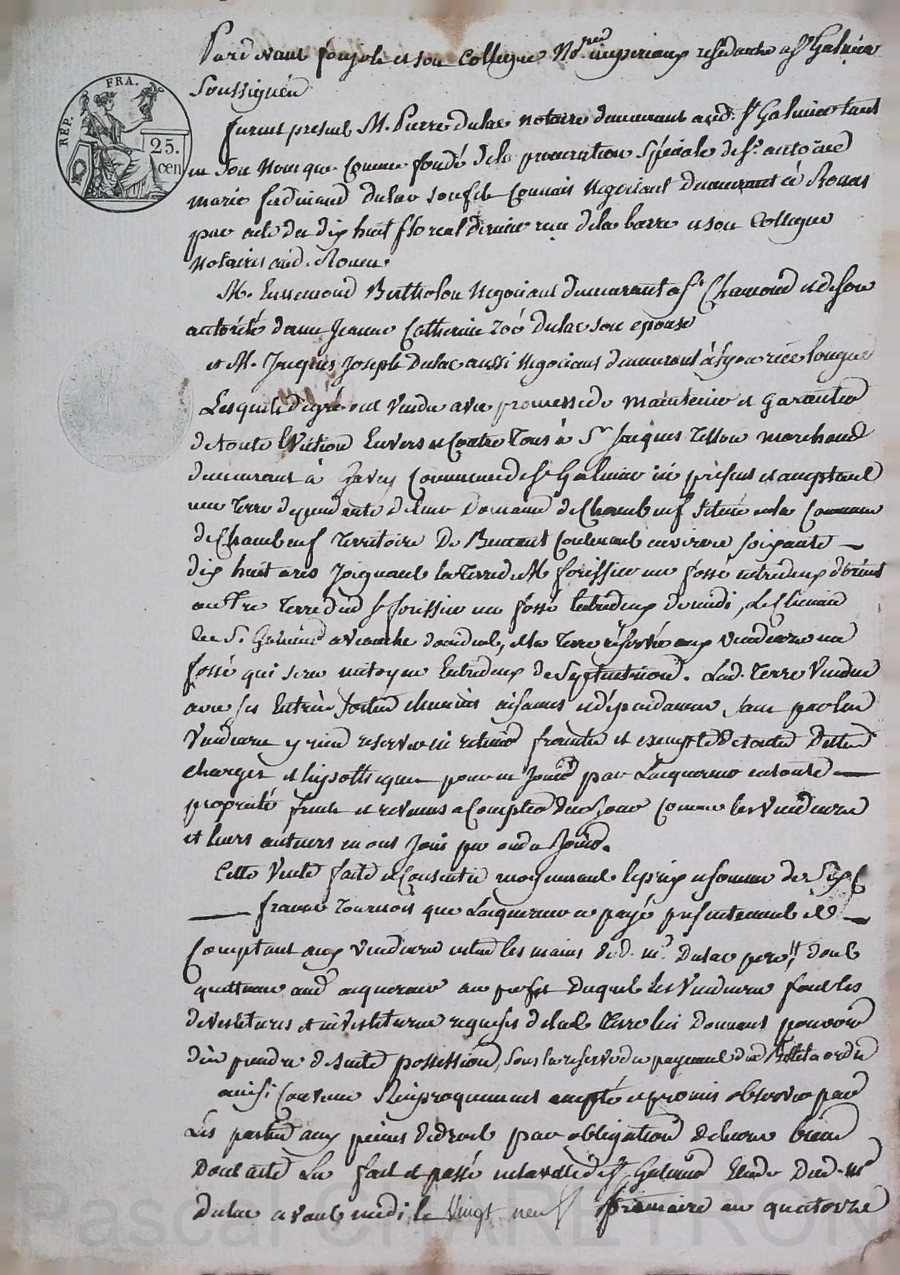 Pardevant et son Collegue No.res imperiaux residents a St Galmier
Soussignés
furent present M. Pierre Dulac notaire demeurant aud. St Galmier tant
REP. FRA.
25.
cen
en son Nom que Comme fondé de la procuration Spéciale de Sr. antoine
marie ferdinand Dulac son fils Negociant demeurant à Rouen
par acte du dix huit floreal dernier reçu delabarre et son Collegue
notaires aud. Rouen
M. Ennemond Bertholon Negociant demeurant a St Chamond et de son
autorité dame Jeanne Catherine Zoé Dulac son epouse
et M. Jacques Joseph Dulac aussi Negociant demeurant à Lyon rue longue
Lesquels de gré ont Vendu avec promesse de maintenir et garantir
de toute Eviction Envers et Contre Tous à Sr Jacques marchand
demeurant à Commune de St Galmier ici présent et acceptant
une Terre dependante de leur Domaine de Chambeuf Situé en la Commune
de Chambeuf Territoire De Contenant environ soixante
dix huit ares Joignant la Terre de M. forissier un fossé entredeux d'orient
autre Terre dud. Sr forissier un fossé Entredeux de midi, Le Chemin
de St. Galmier a d'occident, et la Terre réservée aux Vendeurs un
fossé qui sera mitoyen Entredeux de Septentrion. Lad. Terre Vendue
avec ses Entrées Sorties chemins aisances et dépendances, sans par les
Vendeurs y rien reserver ni retenir franche et exempte de toutes Dettes
charges et hypotheques pour en Jouir par L'acquereur en toute
propriété fruits et revenus a Compter de ce Jour Comme les Vendeurs
et leurs auteurs en ont Joui pu ou dû Jouir.
Cette Vente faite et Consentie moyennant le prix et somme de Six C
francs Tournois que L'acquereur a payé presentement et
Comptant aux Vendeurs entre les mains dud. mr. Dulac pere, dont
quittance aud. acquereur au profit Duquel Les Vendeurs font les
devestitures et investitures requises de lad. Terre lui Donnant pouvoir
d'en prendre de suite possession, sous la reserve du payement du
ainsi Convenu Réciproquement accepté et promis observer par
Les parties aux peines de droit par obligation de leurs biens
Dont acte Lu fait et passé en la ville de St Galmier Etude Dud. mr
Dulac avant midi le Vingt neuf frimaire an quatorze
Pascal CHARETRON